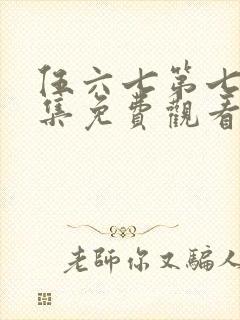 伍六七第七
集免費觀看
老師你又騙人